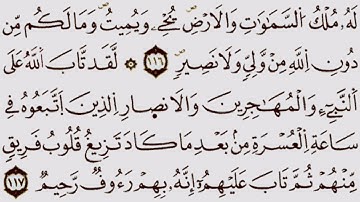 لَهُۥ مُلْكُ ٱلسَّمَٰوَٰتِ وَٱلْأَرْضِ يُحْىِۦ وَيُمِيتُ وَمَا لَكُم مِّن
دُونِ ٱللَّهِ مِن وَلِىٍّ وَلَا نَصِيرٍ ١١٦ ۞ لَّقَد تَّابَ ٱللَّهُ عَلَى
ٱلنَّبِىِّ وَٱلْمُهَٰجِرِينَ وَٱلْأَنصَارِ ٱلَّذِينَ ٱتَّبَعُوهُ فِى
سَاعَةِ ٱلْعُسْرَةِ مِنۢ بَعْدِ مَا كَادَ تَزِيغُ قُلُوبُ فَرِيقٍ
مِّنْهُمْ ثُمَّ تَابَ عَلَيْهِمْ إِنَّهُۥ بِهِمْ رَءُوفٌ رَّحِيمٌ ١١٧